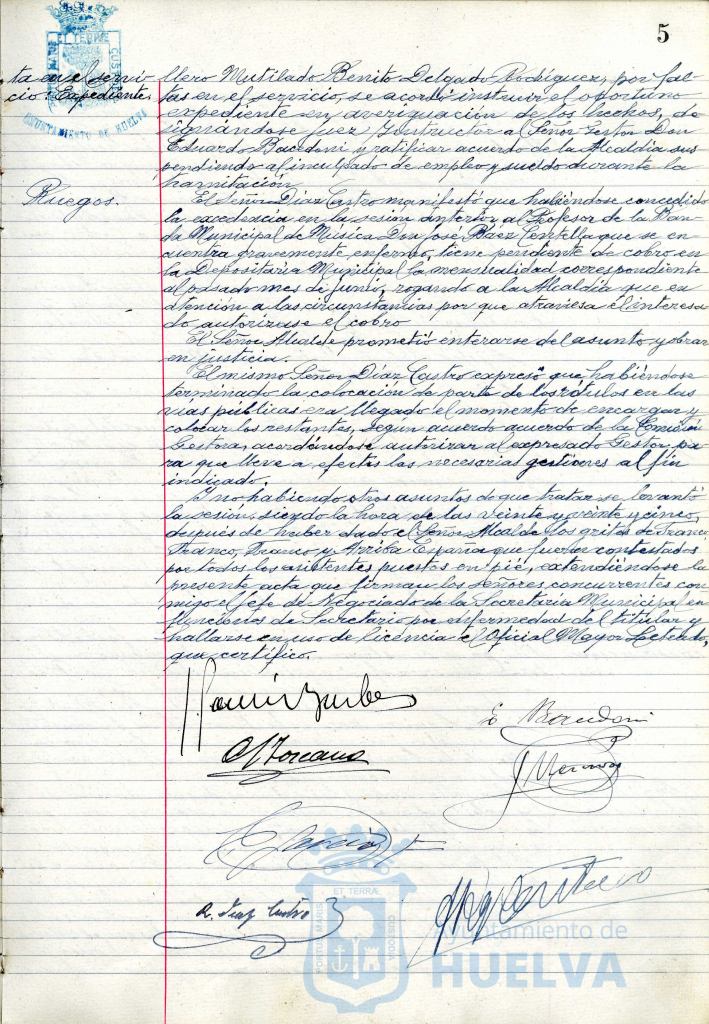 5
PORTUS MARIS ET TERRÆ CUSTODIA
AYUNTAMIENTO DE HUELVA
ta en el servi
cio: Expediente.
llero Mutilado Benito Delgado Rodríguez, por fal
tas en el servicio, se acordó instruir el oportuno
expediente en averiguación de los hechos, de
signándose juez Instructor al Señor Gestor Don
Eduardo Bacedoni y ratificar acuerdo de la Alcaldía sus
pendiendo al inculpado de empleo y sueldo durante la
tramitación.
Ruegos.
El Señor Díaz Castro manifestó que habiéndose concedido
la excedencia en la sesión anterior al Profesor de la Ban
da Municipal de Música Don José Báez Centella que se en
cuentra gravemente enfermo, tiene pendiente de cobro en
la Depositaría Municipal la mensualidad correspondiente
al pasado mes de junio, rogando a la Alcaldía que en
atención a las circunstancias por que atraviesa el interesa
do autorizase el cobro
El Señor Alcalde prometió enterarse del asunto y obrar
en justicia.
El mismo Señor Díaz Castro expresó que habiéndose
terminado la colocación de parte de los rótulos en las
vías públicas era llegado el momento de encargar y
colocar los restantes, según acuerdo acuerdo de la Comisión
Gestora, acordándose autorizar al expresado Gestor pa
ra que lleve a efectos las necesarias gestiones al fin
indicado.
Y no habiendo otros asuntos de que tratar se levantó
la sesión siendo la hora de las veinte y veinte y cinco,
después de haber dado el Señor Alcalde los gritos de Franco,
Franco, Franco y Arriba España que fueron contestados
por todos los asistentes puestos en pié, extendiéndose la
presente acta que firman los señores concurrentes con
migo el Jefe de Negociado de la Secretaría Municipal en
funciones de Secretario por enfermedad del titular y
hallarse en uso de licencia el Oficial Mayor Letrado,
que certifico.
R. Díaz Castro
PORTUS MARIS ET TERRÆ CUSTODIA
Ayuntamiento de
HUELVA